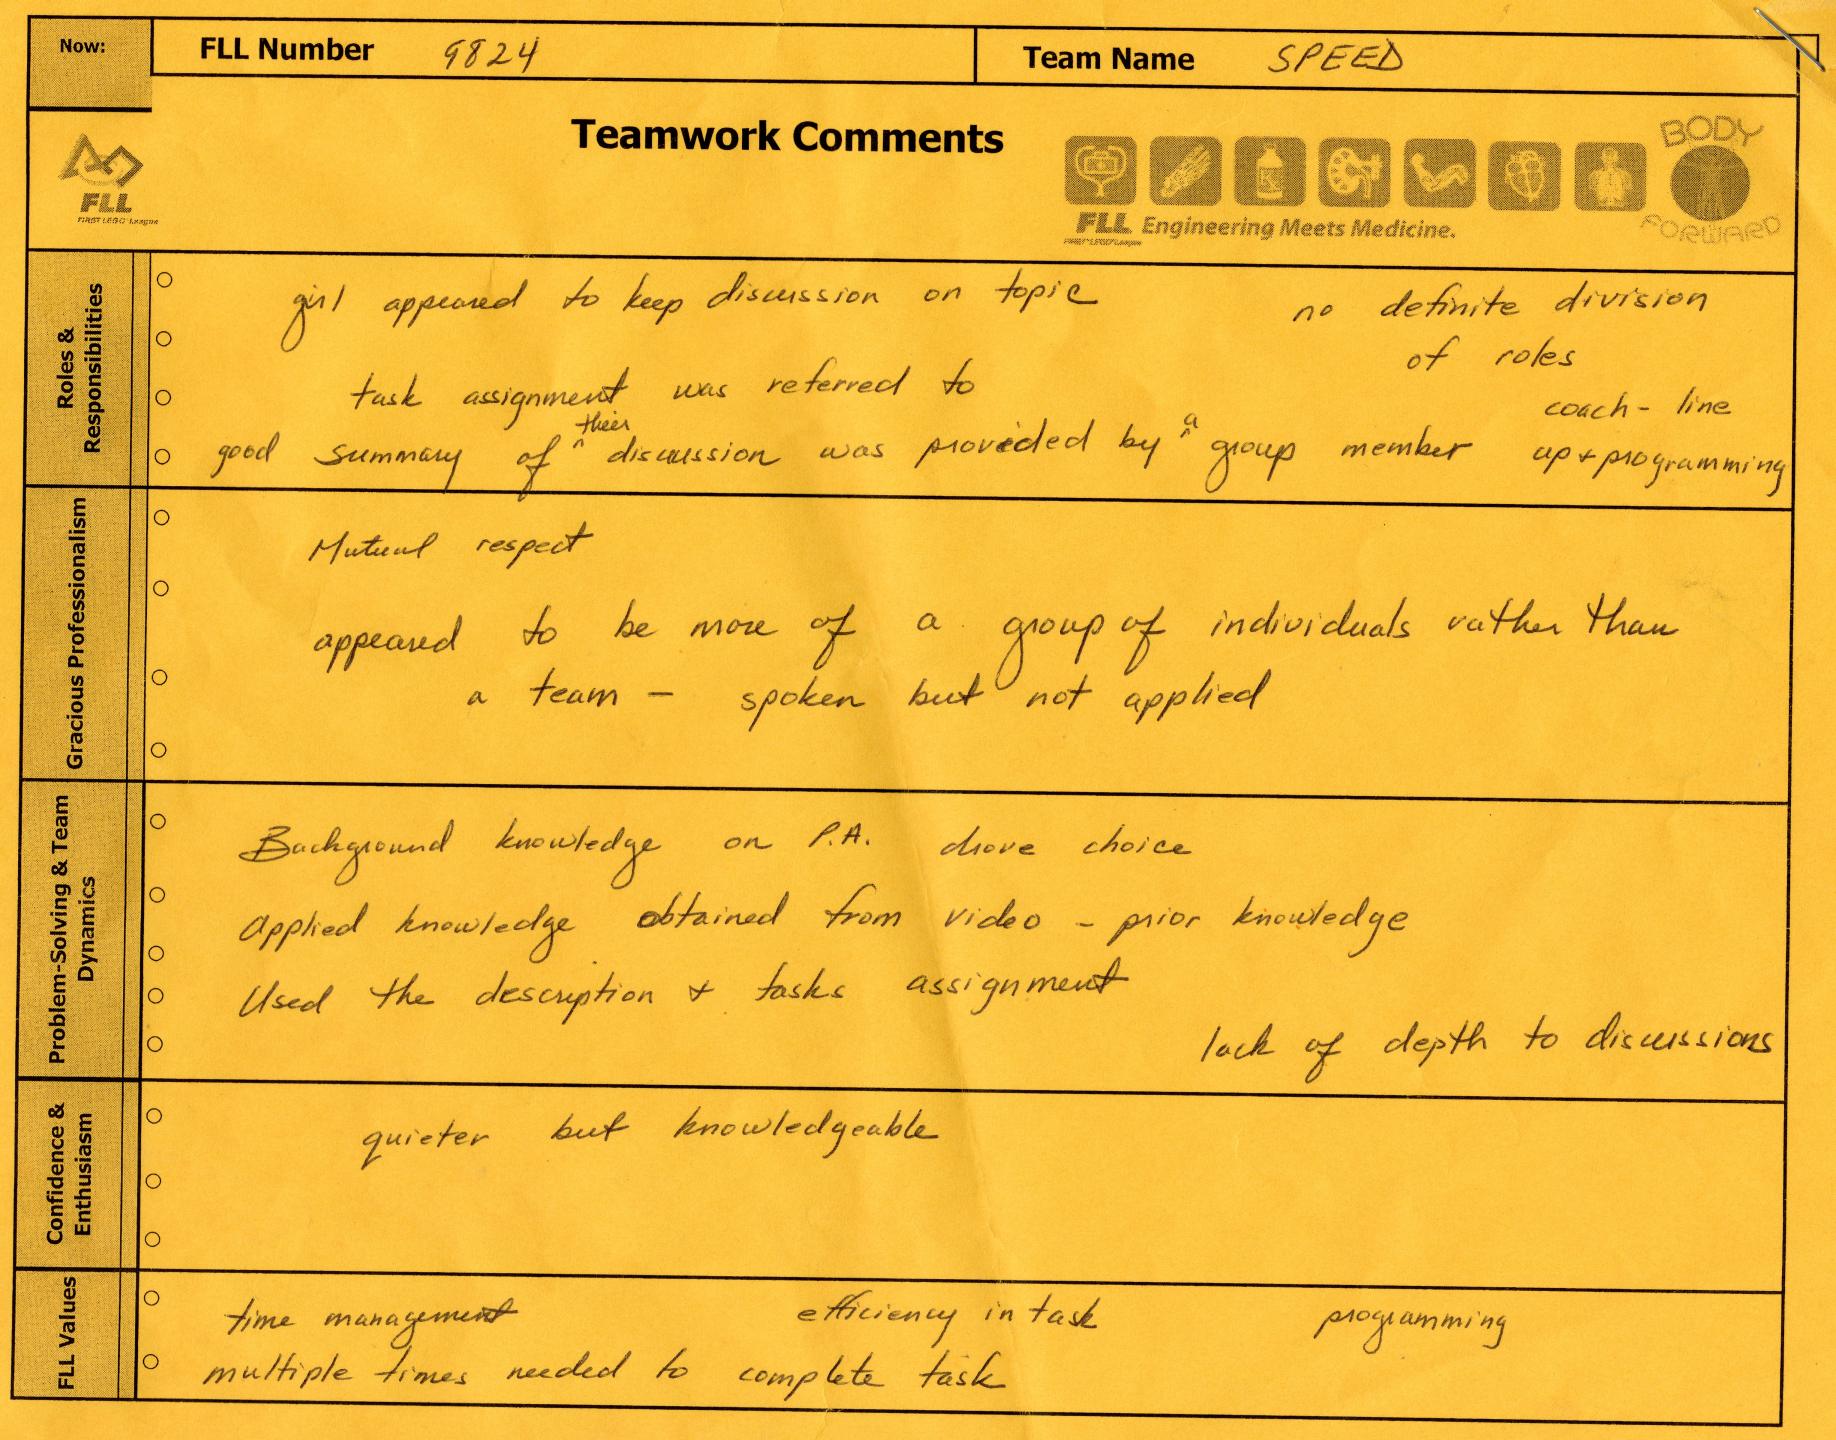 Now:
FLL Number 9824
Team Name SPEED
Teamwork Comments
FLL
FIRST LEGO League
FLL Engineering Meets Medicine.
BODY
FORWARD
Roles &
Responsibilities
girl appeared to keep discussion on topic
no definite division
of roles
task assignment was referred to
coach - line
up + programming
good summary of their discussion was provided by a group member
Gracious Professionalism
Mutual respect
appeared to be more of a group of individuals rather than
a team - spoken but not applied
Problem-Solving & Team
Dynamics
Background knowledge on P.A. drove choice
Applied knowledge obtained from video - prior knowledge
Used the description + tasks assignment
lack of depth to discussions
Confidence &
Enthusiasm
quieter but knowledgeable
FLL Values
time management efficiency in task programming
multiple times needed to complete task